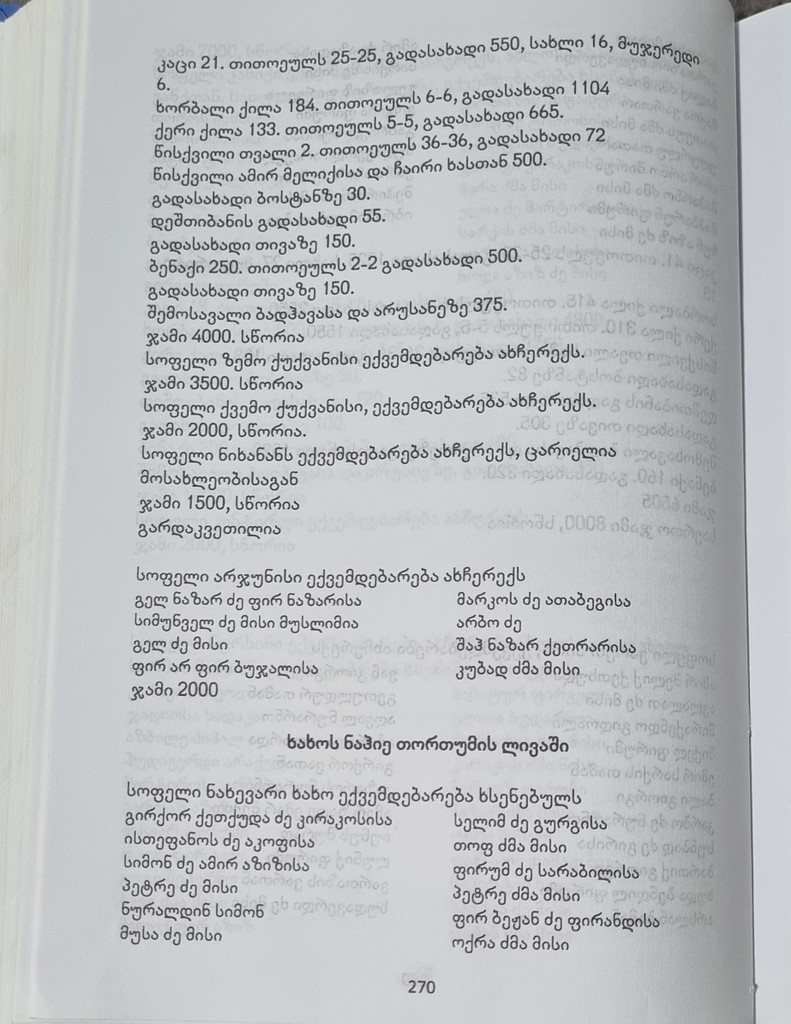 კაცი 21. თითოეულს 25-25, გადასახადი 550, სახლი 16, მუჯერედი
6.
ხორბალი ქილა 184. თითოეულს 6-6, გადასახადი 1104
ქერი ქილა 133. თითოეულს 5-5, გადასახადი 665.
წისქვილი თვალი 2. თითოეულს 36-36, გადასახადი 72
წისქვილი ამირ მელიქისა და ჩაირი ხასთან 500.
გადასახადი ბოსტანზე 30.
დეშთიბანის გადასახადი 55.
გადასახადი თივაზე 150.
ბენაქი 250. თითოეულს 2-2 გადასახადი 500.
გადასახადი თივაზე 150.
შემოსავალი ბადჰავასა და არუსანეზე 375.
ჯამი 4000. სწორია
სოფელი ზემო ქუქვანისი ექვემდებარება ახჩერექს.
ჯამი 3500. სწორია
სოფელი ქვემო ქუქვანისი, ექვემდებარება ახჩერექს.
ჯამი 2000, სწორია.
სოფელი ნიხანანს ექვემდებარება ახჩერექს, ცარიელია
მოსახლეობისაგან
ჯამი 1500, სწორია
გარდაკვეთილია
სოფელი არჯუნისი ექვემდებარება ახჩერექს
გელ ნაზარ ძე ფირ ნაზარისა
სიმუნველ ძე მისი მუსლიმია
გელ ძე მისი
ფირ არ ფირ ბუჯალისა
ჯამი 2000
მარკოს ძე ათაბეგისა
არბო ძე
შაჰ ნაზარ ქეთრარისა
კუბად ძმა მისი
ხახოს ნაჰიე თორთუმის ლივაში
სოფელი ნახევარი ხახო ექვემდებარება ხსენებულს
გირქორ ქეთქუდა ძე კირაკოსისა
ისთეფანოს ძე აკოფისა
სიმონ ძე ამირ აზიზისა
პეტრე ძე მისი
ნურალდინ სიმონ
მუსა ძე მისი
სელიმ ძე გურგისა
თოფ ძმა მისი
ფირუმ ძე სარაბილისა
პეტრე ძმა მისი
ფირ ბეჟან ძე ფირანდისა
ოქრა ძმა მისი
270